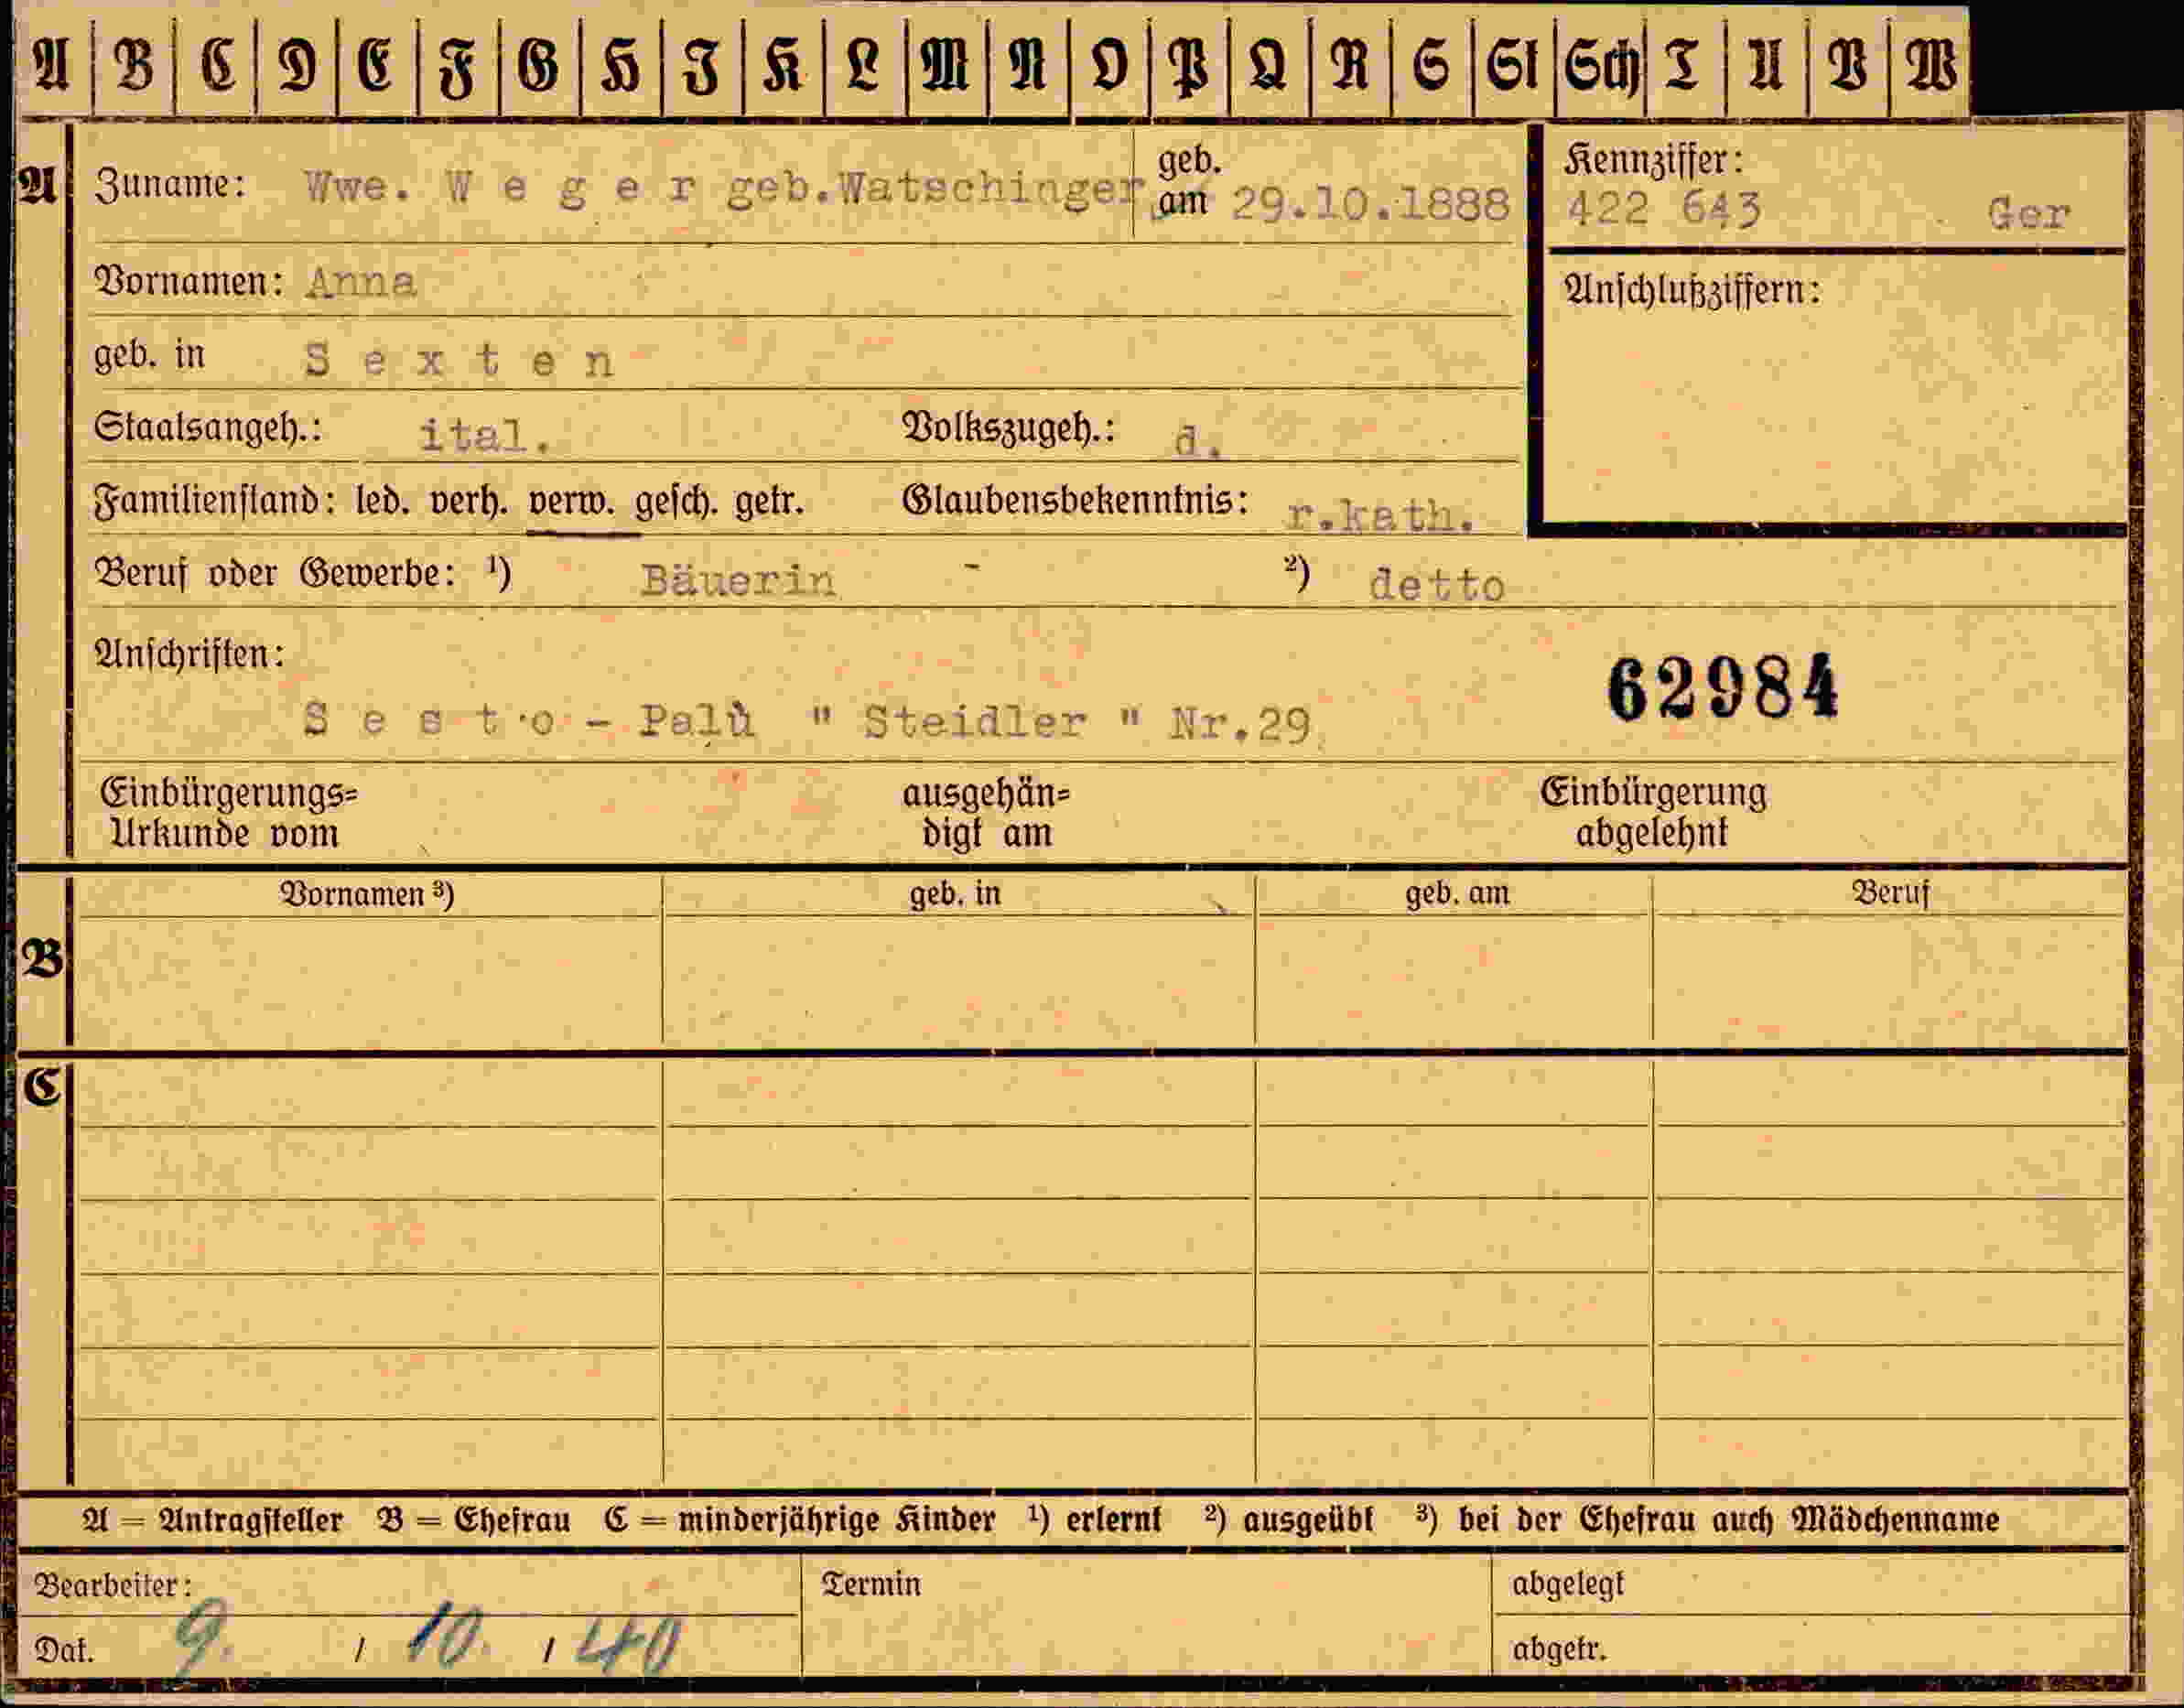 A B C D E F G H J K L M N O P Q R S St Sch T U V W
A Zuname: Wwe. W e g e r geb.Watschinger geb. am 29.10.1888
Kennziffer: 422 643 Ger
Vornamen: Anna
Anschlußziffern:
geb. in S e x t e n
Staatsangeh.: ital. Volkszugeh.: d.
Familienstand: led. verh. verw. gesch. getr. Glaubensbekenntnis: r.kath.
Beruf oder Gewerbe: ¹) Bäuerin - ²) detto
Anschriften:
62984
S e s t o - Palù " Steidler " Nr.29
Einbürgerungs= ausgehän= Einbürgerung
Urkunde vom digt am abgelehnt
Vornamen ³) geb. in geb. am Beruf
B
C
A = Antragsteller B = Ehefrau C = minderjährige Kinder ¹) erlernt ²) ausgeübt ³) bei der Ehefrau auch Mädchenname
Bearbeiter: Termin abgelegt
Dat. 9. / 10. / 40 abgetr.